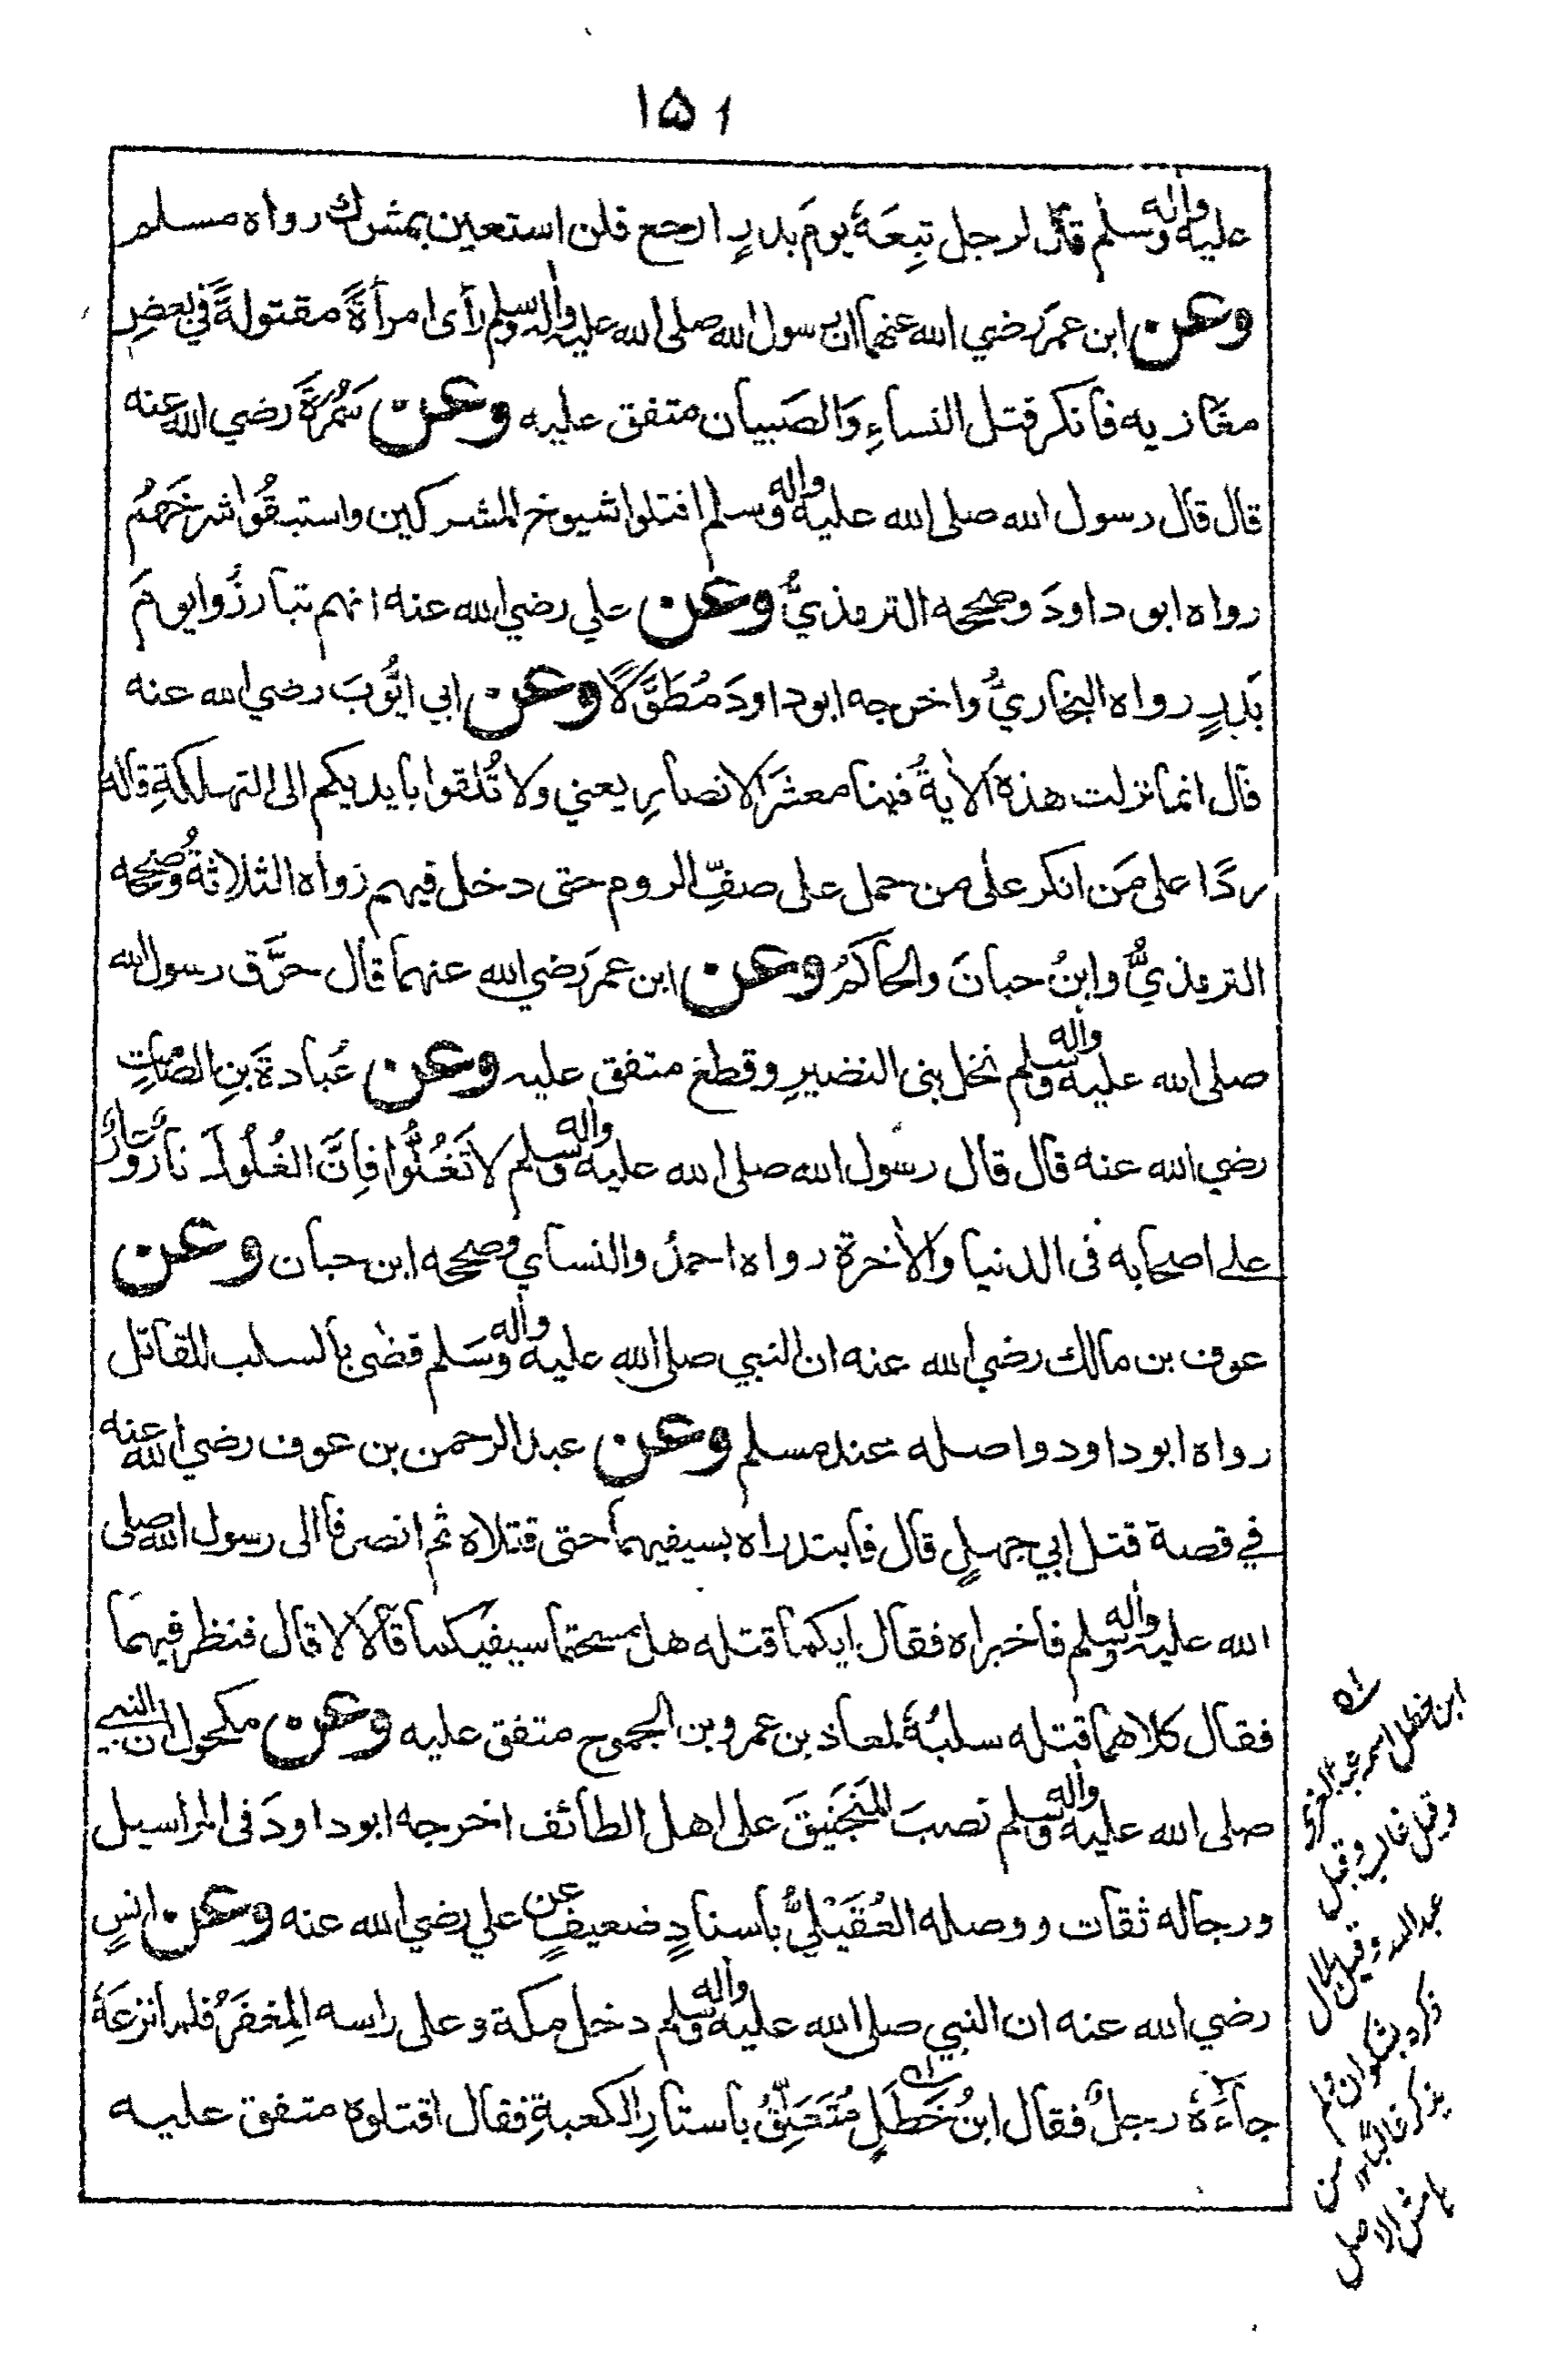 ١٥١
عليه واله وسلم قال لرجل تبِعَهُ يومَ بدرٍ ارجع فلن استعين بمشرك رواه مسلم
وعن ابن عمرَ رضي الله عنهما ان رسول الله صلى الله عليه واله وسلم رأى امرأةً مقتولةً في بعضِ
مغازيه فانكر قتل النساءِ وَالصَبيان متفق عليه وعن سَمُرةَ رضي الله عنه
قال قال رسول الله صلى الله عليه واله وسلم اقتلوا شيوخ المشركين واستبقُوا شرخَهمُ
رواه ابو داودَ وصححه الترمذيُّ وعن علي رضي الله عنه انهم تبارزُوا يومَ
بَدرٍ رواه البخاريُّ واخرجه ابو داودَ مُطَوَّلًا وعن ابي ايُّوبَ رضي الله عنه
قال انما نزلت هذه الاٰيةُ فينا معشَرَ الانصارِ يعني ولا تُلقوا بايديكم الى التهلكةِ قاله
ردًا على مَن انكر على من حمل على صفِّ الروم حتى دخل فيهم رواه الثلاثةُ وصححه
الترمذيُّ وابنُ حبانَ والحاكمُ وعن ابن عمرَ رضي الله عنهما قال حرَّق رسول الله
صلى الله عليه واله وسلم نخل بنى النضيرِ وقطع متفق عليه وعن عُبادةَ بنِ الصامتِ
رضي الله عنه قال قال رسول الله صلى الله عليه واله وسلم لا تَغُلُّوا فاِنَّ الغُلُولَ نارٌ وعارٌ
على اصحابه فى الدنيا والاٰخرة رواه احمدُ والنساي وصححه ابن حبان وعن
عوف بن مالك رضي الله عنه ان النبي صلى الله عليه واله وسلم قضٰى بالسلب للقاتل
رواه ابو داود واصله عند مسلم وعن عبد الرحمن بن عوف رضي الله عنه
في قصة قتل ابي جهلٍ قال فابتدراه بسيفيهما حتى قتلاه ثم انصرفا الى رسول الله صلى
الله عليه واله وسلم فاخبراه فقال ايكما قتله هل مسحتما سيفيكما قالا لا قال فنظر فيهما
فقال كلاهما قتله سلبُهُ لمعاذ بن عمرو بن الجموح متفق عليه وعن مكحول ان النبي
صلى الله عليه واله وسلم نصبَ المَنجَنيقَ على اهل الطائف اخرجه ابو داودَ فى المراسيل
ورجاله ثقات ووصله العُقَيْليُّ باسنادٍ ضعيفٍ عن علي رضي الله عنه وعن انسٍ
رضي الله عنه ان النبي صلى الله عليه واله وسلم دخل مكة وعلى راسه المِغفَرُ فلما نزعَهُ
جاءَهُ رجلٌ فقال ابنُ خَطَلٍ مُتَعَلِّقٌ باستارِ الكعبةِ فقال اقتلوه متفق عليه
ابن خطل اسمه عبد العزى
وقيل غالب وقيل
عبد الله وقيل هلال
ذكره بشكوان ولم
يذكر غالبًا من
هامش الاصل